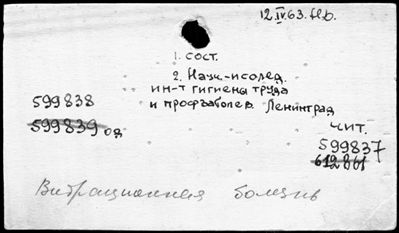 12.IV.63.
1. сост.
2. Науч.-исслед.
ин-т гигиены труда
и профзаболев. Ленинград
599838
599839 од
чит.
599837
612861
Вибрационная болезнь